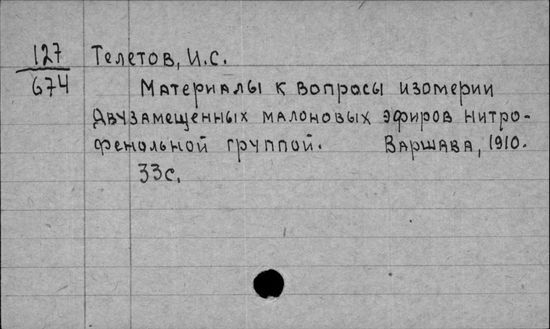 127 Телетов, И.С.
674 Материалы к вопросы изомерии
двузамещенных малоновых эфиров нитро-
фенольной группой. Варшава, 1910.
33с.